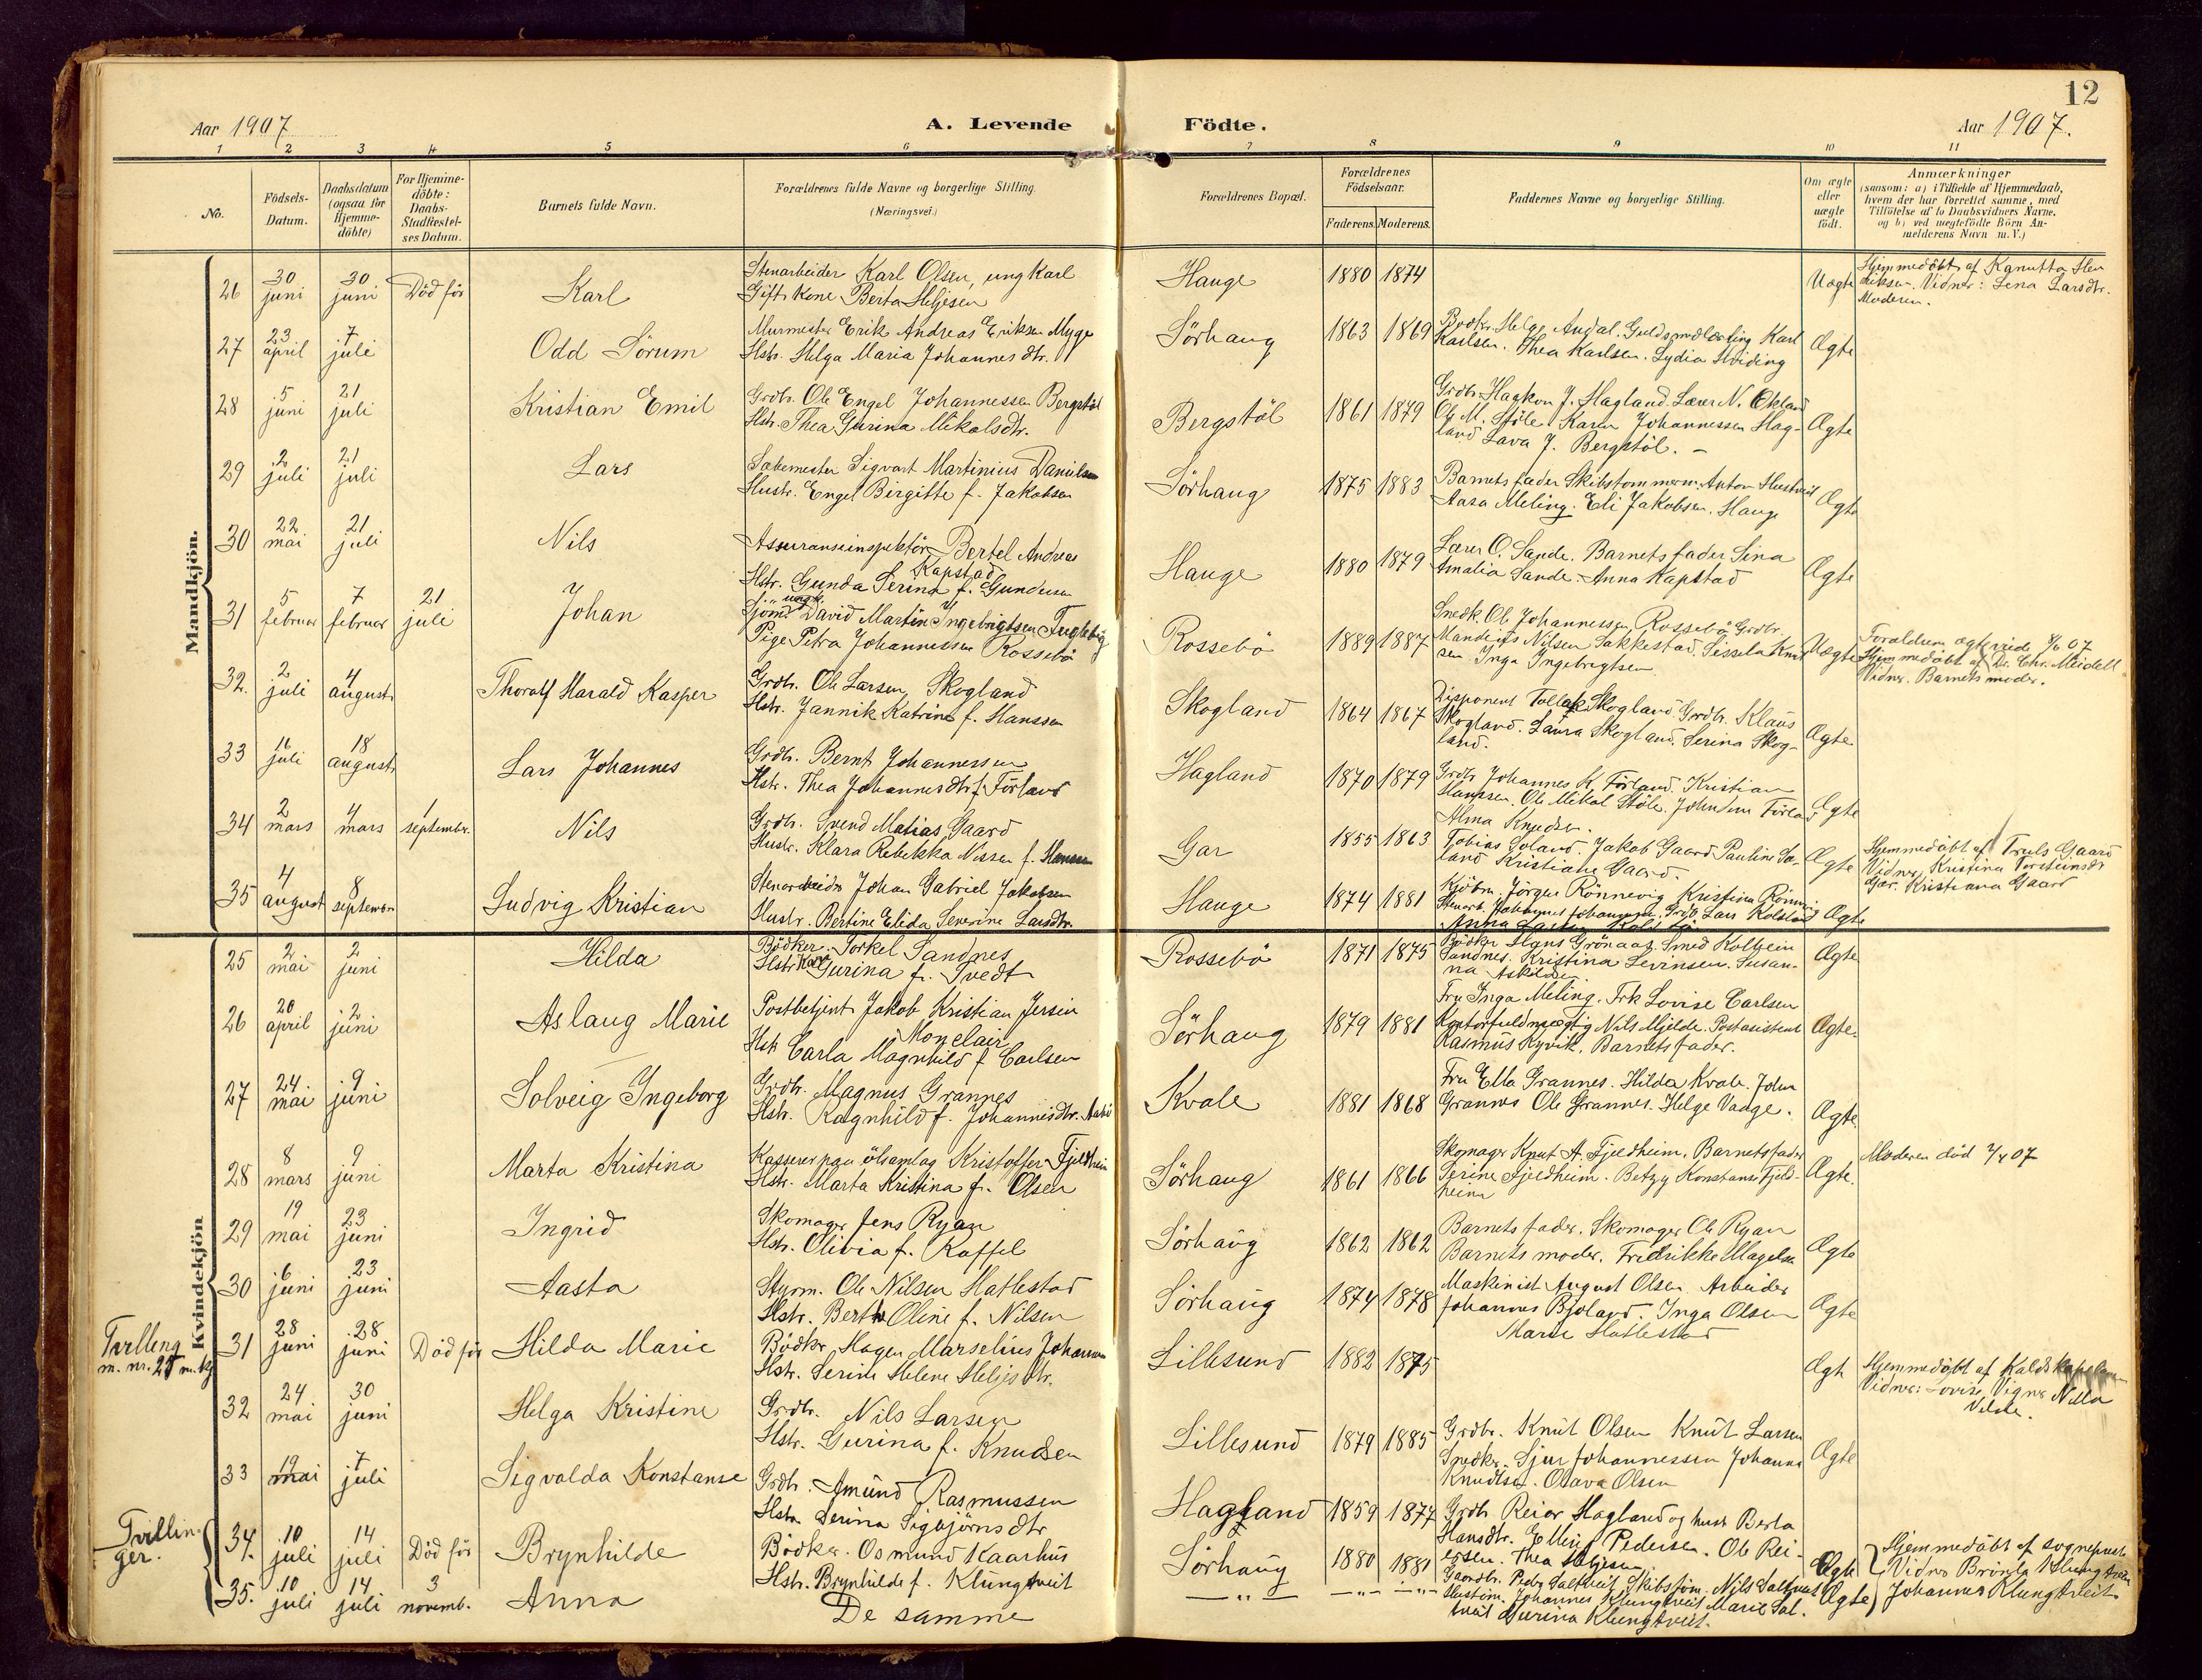 12
Aar 1907
A. Levende Fødte.
Aar 1907.
1 2 3 4 5 6 7 8 9 10 11
No.
Fødsels-Datum.
Daabsdatum (ogsaa for Hjemme-døbte)
For Hjemme-døbte: Daabs-Stadfæstel-ses Datum.
Barnets fulde Navn.
Forældrenes fulde Navne og borgerlige Stilling.
(Næringsvei.)
Forældrenes Bopæl.
Forældrenes Fødselsaar.
Faderens. Moderens.
Faddernes Navne og borgerlige Stilling.
Om ægte eller uægte født.
Anmærkninger
(saasom: a) i Tilfælde af Hjemmedaab,
hvem der har forrettet samme, med
Tilføielse af to Daabsvidners Navne,
og b) ved uægtefødte Børn An-
melderens Navn m. V.)
Mandkjøn.
26 30 juni 30 juni Død før Karl
Stenarbeider Karl Olsen, ung Karl
Gift Kone Berta Heljesen
Hauge 1880 1874 Uægte
Hjemmedøbt af Kanutta Hen
riksen. Vidner: Lena Larsdtr.
Moderen.
27 23 april 7 juli Odd Sørum
Murmester Erik Andreas Eriksen Myge
Hstr. Helga Maria Johannesdtr.
Sørhaug 1863 1869
Bødker Helge Audal. Guldsmedlærling Karl
Karlsen. Thea Karlsen. Lydia Hviding
Ægte
28 5 juni 21 juli Kristian Emil
Grdbr. Ole Engel Johannessen Bergstøl
Hstr. Thea Gurina Mikalsdtr.
Bergstøl 1861 1879
Grdbr. Haakon J. Hagland. Lærer N. Økland
Ole M. Støle Karen Johannessen Hag-
land Lava J. Bergstøl. -
Ægte
29 2 juli 21 juli Lars
Sæbemester Sigvart Martinius Danielsen
Hustr. Engel Birgitte f. Jakobsen
Sørhaug 1875 1883
Barnets fader Skibstømmerm. Anton Hustveit
Aasa Meling. Eli Jakobsen. Hauge
Ægte
30 22 mai 21 juli Nils
Assuranseinspektør Bertel Andreas
Kapstad
Hstr. Gunda Serina f. Gundersen
Hauge 1880 1879
Lærer O. Sande. Barnets fader Sina
Amalia Sande. Anna Kapstad
Ægte
31 5 februar 7 februar 21 juli Johan
ungk.
Sjøm. David Martin Ingebrigtsen Fuglebig
Pige Petra Johannessen Rossebø
Rossebø 1889 1887
Snedk. Ole Johannessen Rossebø Grdbr.
Mandius Nilsen Sakkestad. Sissela Knut
sen Inga Ingebrigtsen
Uægte
Foraldrene ægteviede 8/6 07
Hjemmedøbt af Dr. Chr. Meidell
Vidner. Barnets moder.
32. 2 juli 4 august Thoralf Harald Kasper
Grdbr. Ole Larsen Skogland
Hstr. Jannik Katrine f. Hanssen
Skogland 1864 1867
Disponent Tollak Skogland Grdbr. Klaus
Skogland. Laura Skogland. Serina Skog-
land.
Ægte
33 16 juli 18 august Lars Johannes
Grdbr. Bernt Johannessen
Hstr. Thea Johannesdtr f. Førland
Hagland 1870 1879
Grdbr Johannes K. Førland. Kristian
Hanssen. Ole Mikal Støle. Førland
Alma Knudsen.
Ægte
34 2 mars 4 mars 1 septembr. Nils
Grdbr. Svend Matias Gaard
Hustr. Klara Rebekka Nissen f. Hansen
Gar 1855 1863
Tobias Soland. Jakob Gaard Pauline So-
land Kristiane Gaard.
Ægte
Hjemmedøbt af Truls Gaard
Vidner Kristina Torsteinsdtr
Gar. Kristiana Gaard
35 4 august 8 septembr Ludvig Kristian
Stenarbeider Johan Gabriel Jakobsen
Hustr. Bertine Elida Severine Larsdtr.
Hauge 1874 1881
Kjøbm. Jørgen Rønnevig Kristina Rønnevig
Stenarb. Johannes Johannessen. Grdb. Lars Kolstø
Ægte
Kvindekjøn
25 2 mai 2 juni Hilda
Bødker Torkel Sandnes
Hstr Kari Gurina f. Tvedt
Rossebø 1871 1875
Bødker Hans Grønaas. Smed Kolbein
Sandnes. Kristina Levinsen. Susan-
na Askildsen
Ægte
26 20 april 2 juni Aslaug Marie
Postbetjent Jakob Kristian Jersin
Monclair
Hstr Carla Magnhild f Carlsen
Sørhaug 1879 1881
Fru Inga Meling. Frk Lovise Carlsen
Kontorfuldmægtig Nils Mjelde. Postasistent
Rasmus Kyvik. Barnets fader.
Ægte.
27 24. mai 9 juni Solveig Ingeborg
Grdbr. Magnus Grannes
Hstr. Ragnhild f. Johannesdtr.
Kvale 1881 1868
Fru Ella Grannes. Hilda Kvale. John
Grannes Ole Grannes. Helge Vaage.
Ægte
28 8 mars 9 juni Marta Kristina
Kasserer paa ølsamlag Kristoffer Fjeldheim
Hstr. Marta Kristina f. Olsen
Sørhaug 1861 1866
Skomager Knut A. Fjeldheim. Barnets fader
Serine Fjeldheim. Betzy Konstanse Fjeld-
heim
Ægte.
Moderen død 7/4 07
29 19 mai 23 juni Ingrid
Skomager Jens Ryan
Hstr. Olivia f. Raffel
Sørhaug 1862 1862
Barnets fader. Skomager Ole Ryan
Barnets moder. Fredrikke Magelsen
Ægte
30 6 juni 23 juni Aasta
Styrm. Ole Nilsen Hatlestad
Hstr. Berthe Oline f. Nilsen
Sørhaug 1874 1878
Maskinist August Olsen Arbeider
Johannes Bjoland. Inga Olsen
Marie Hatlestad
Ægte
Tvilling
m. nr. 25 m.kj.
31 28 juni 28 juni Død før Hilda Marie
Bødker Hagen Marselius Johannessen
Hstr. Serine Helene Heljesdtr.
Lillesund 1882 1875 Ægte
Hjemmedøbt af Kaldskapellan
Vidner: Lovise Vignes Nilla
Velde.
32 24 mai 30 juni Helga Kristine
Grdbr. Nils Larsen
Hstr. Gurina f. Knudsen
Lillesund 1879 1885
Grdbr. Knut Olsen Knut Larsen
Snedker. Sjur Johannessen Johanna
Knudsen. Olava Olsen
Ægte
33 19 mai 7 juli Sigvalda Konstanse
Grdbr. Amund Rasmussen
Hstr. Serina Sigbjørnsdtr
Hagland 1859 1877
Grdb. Reiar Hagland og hust Berta
Hansdtr. Elling Pedersen. Ole Rei-
ersen. Thea Heljesen
Tvillin-
ger.
34. 10 juli 14 juli Død før Brynhilde
Bødker. Osmund Kaarhus
Hstr. Brynhilde f. Klungtveit
Sørhaug 1880 1881 Ægte
35. 10 juli 14 juli 3 novemb. Anna
De samme
— " — — " — — " —
Gaardbr. Peder Saltveit, Skibstøm. Nils Saltveit
Hustøm. Johannes Klungtveit Marie Sal-
tveit Gurina Klungtveit.
Ægte
Hjemmedøbt af sogneprest
Vidner Brønla Klungtveit
Johannes Klungtveit